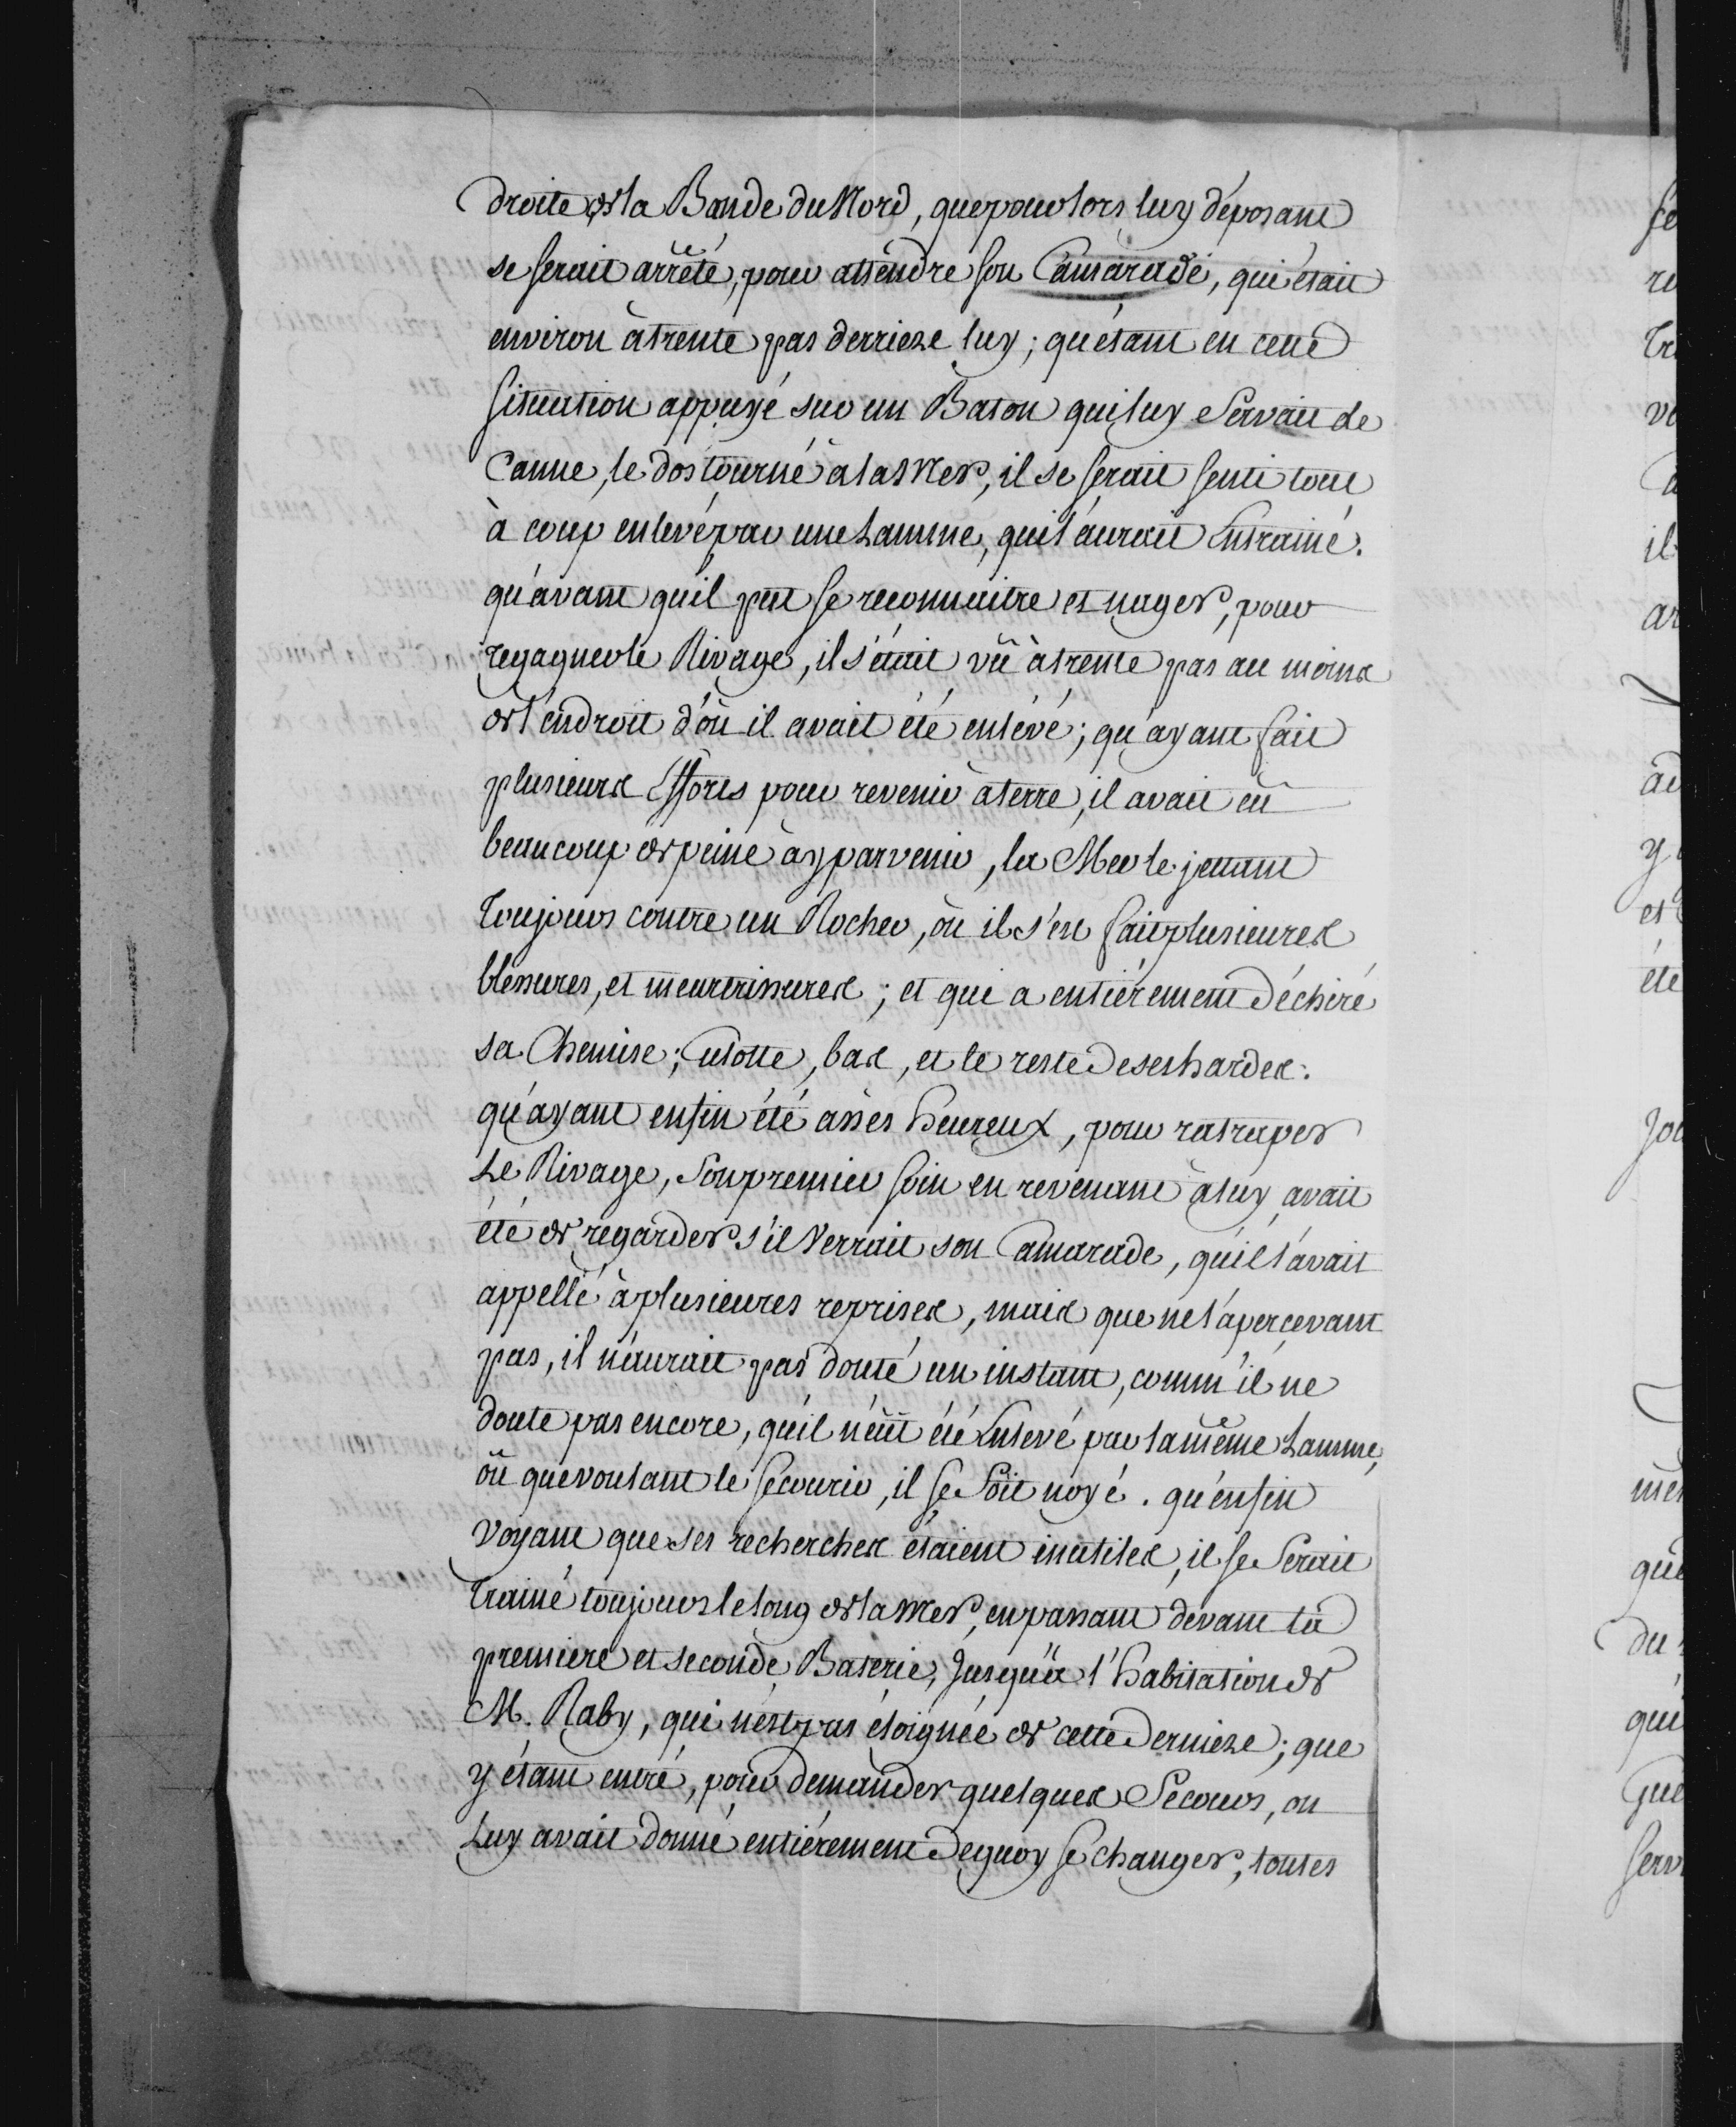 droite de la Bande du Nord, que pour lors luy déposant
se serait arrêté, pour attendre son Camarade, qui était
environ à trente pas derriere luy; qu'étant en cette
situation appuyé sur un Baton qui luy servait de
Canne, le dos tourné à la Mer, il se serait senti tout
à coup enlevé par une Lamme, qui l'aurait Entrainé.
qu'avant qu'il put se reconnaitre et nager, pour
regagner le Rivage, il s'était vû à trente pas au moins
de l'endroit d'où il avait été enlevé; qu'ayant fait
plusieurs Efforts pour revenir à terre, il avait eû
beaucoup de peine à y parvenir, la Mer le jettant
toujours contre un Rocher, où il s'est fait plusieures
blessures, et meurtrissures; et qui a entiérement déchiré
sa Chemise; Culotte, bas, et le reste de ses hardes.
qu'ayant enfin été assès heureux, pour ratraper
Le Rivage, son premier soin en revenant à luy avait
été de regarder s'il verrait son Camarade, qu'il l'avait
appellé à plusieures reprises, mais que ne l'apercevant
pas, il n'aurait pas douté un instant, comm'il ne
doute pas encore, qu'il n'eût été Enlevé par la même Lamme,
où que voulant le secourir, il se soit noyé. qu'enfin
voyant que ses recherches étaient inutiles, il se serait
trainé toujours le long de la Mer, en passant devant la
premiere et seconde Baterie, jusqu'à l'habitation de
M. Raby, qui n'est pas éloignée de cette derniere; que
y étant entré, pour demander quelques secours, on
Luy avait donné entiérement de quoy se changer, toutes